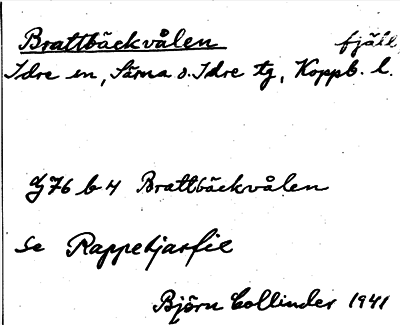 Brattbäckvålen fjäll
Idre sn, Särna o. Idre tg, Koppb. l.
J 76 b 4 Brattbäckvålen
Se
Björn Collinder 1941